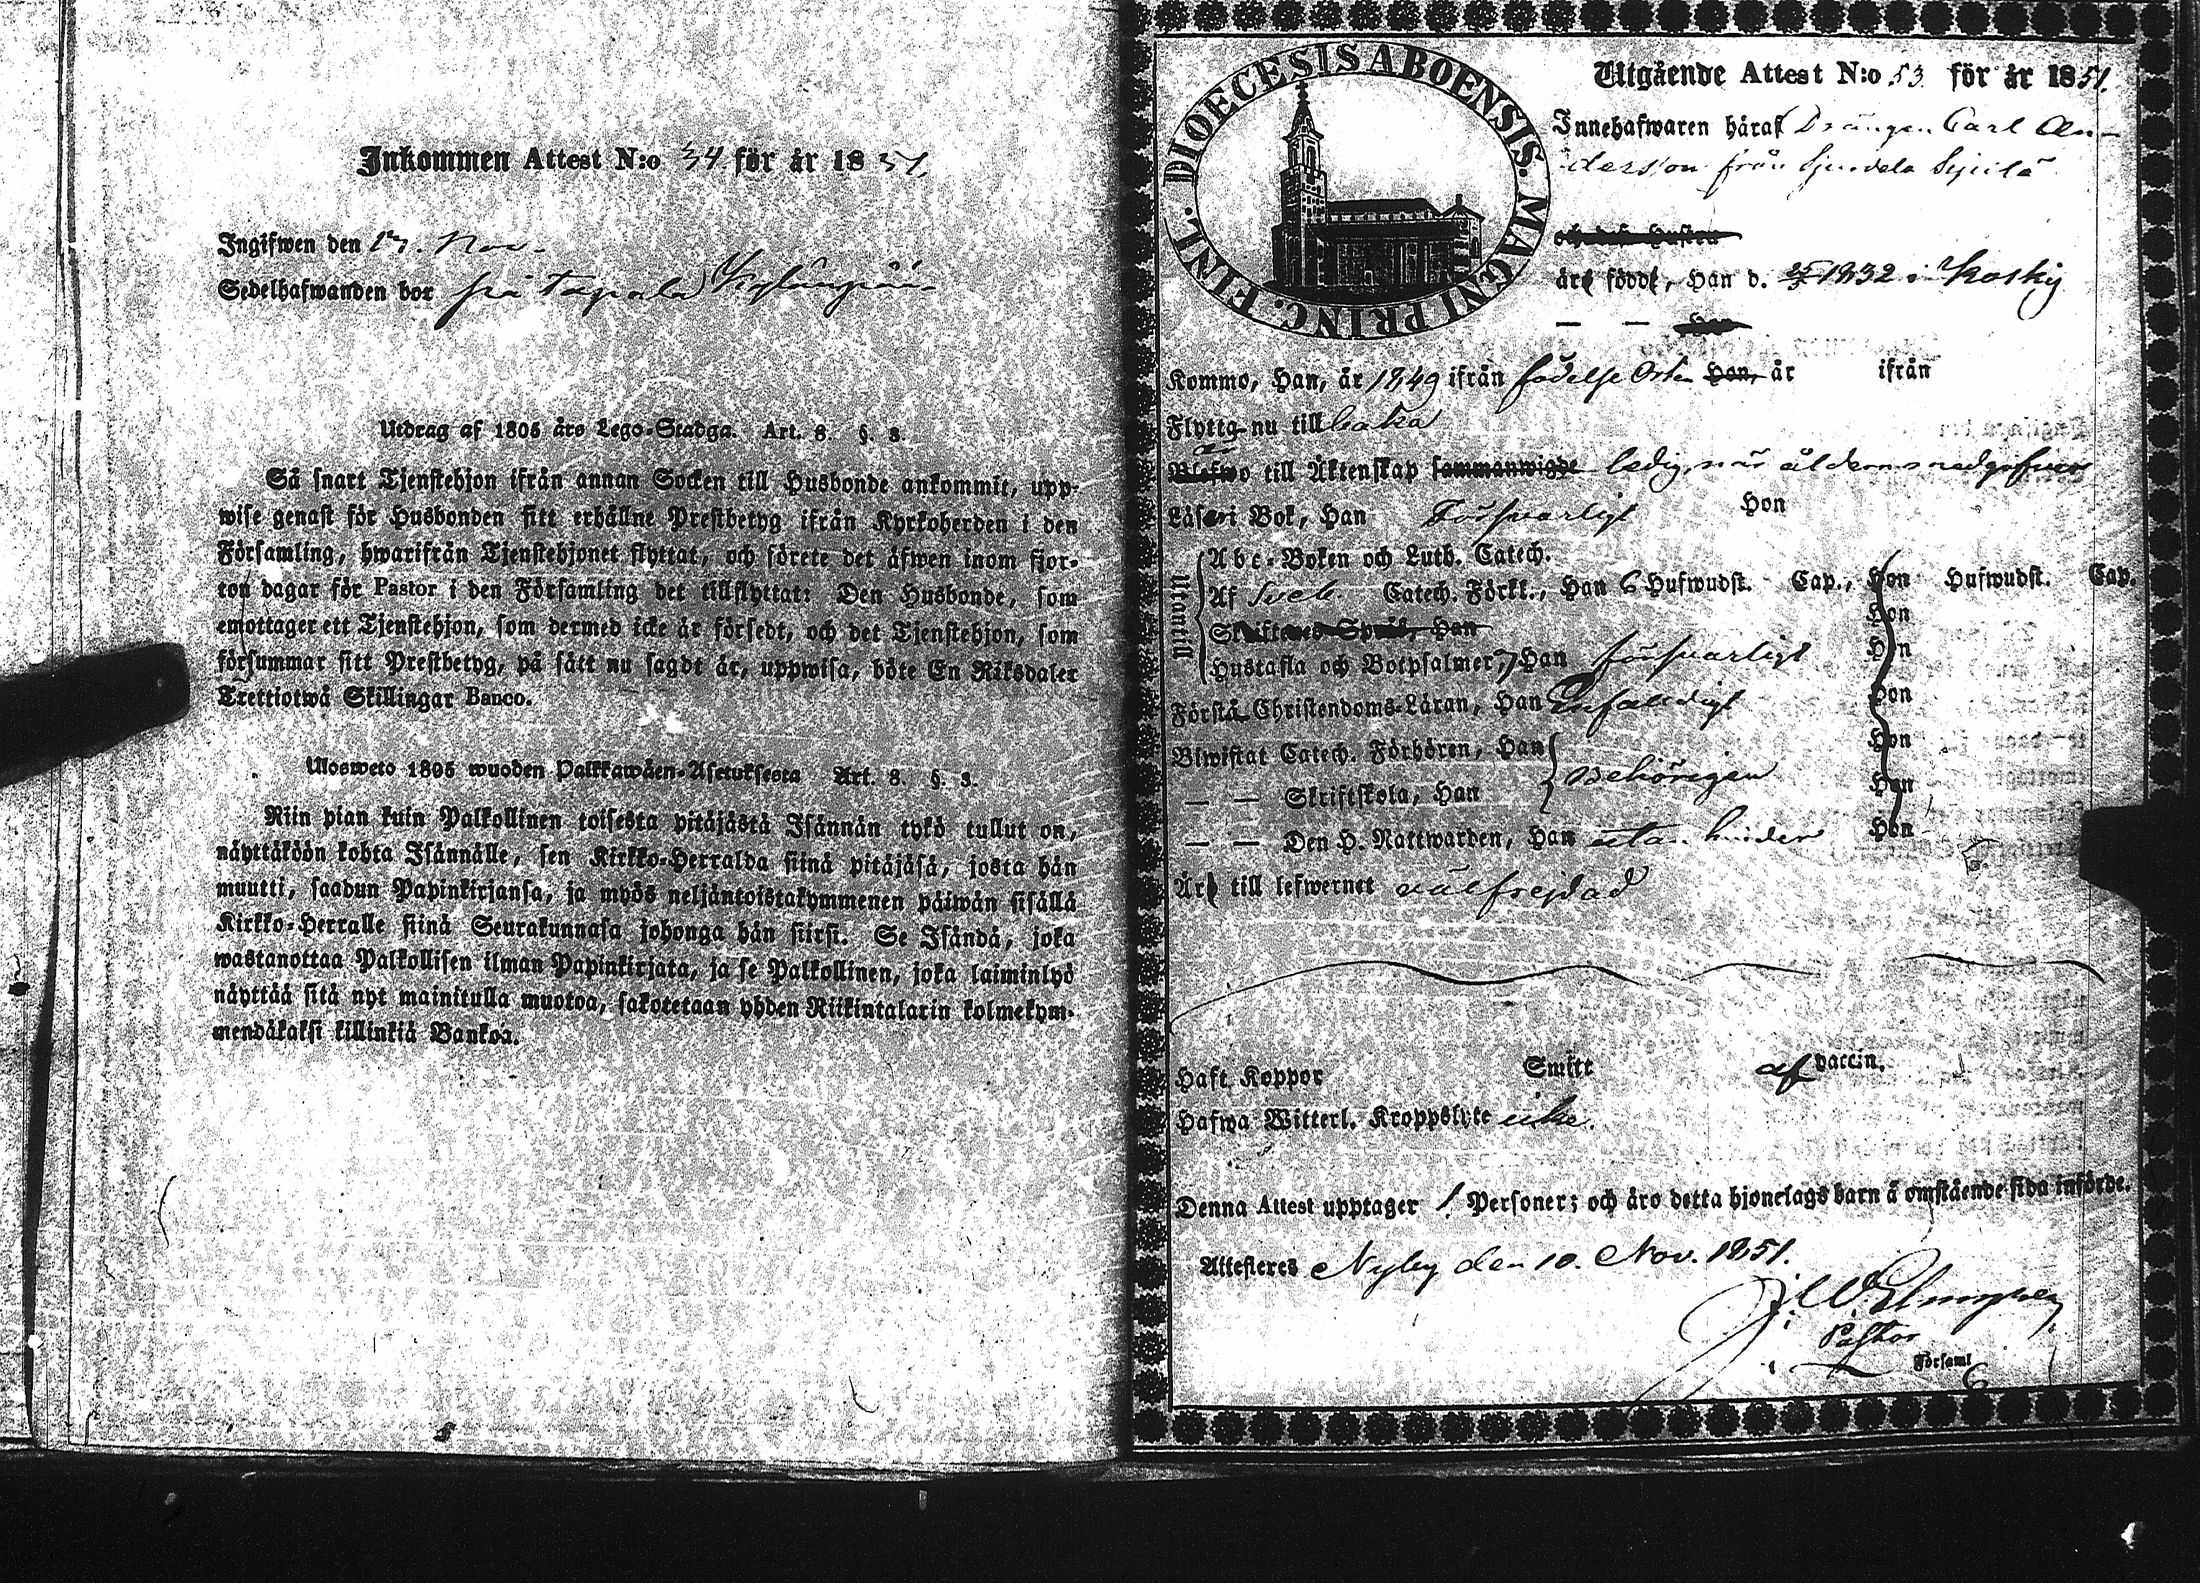 Inkommen Attest N:o 34 för år 1851.
Ingifwen den 17. Nov.
Sedelhafwanden bor på Tapala
Utdrag af 1805 års Lego-Stadga. Art. 8. §. 3.
Så snart Tjenstehjon ifrån annan Socken till Husbonde ankommit, upp-
wise genast för Husbonden sitt erhållne Prestbetyg ifrån Kyrkoherden i den
Församling, hwarifrån Tjenstehjonet flyttat, och förete det äfwen inom fjor-
ton dagar för Pastor i den Församling det tillflyttat: Den Husbonde, som
emottager ett Tjenstehjon, som dermed icke är försedt, och det Tjenstehjon, som
försummar sitt Prestbetyg, på sätt nu sagdt är, uppwisa, böte En Riksdaler
Trettiotwå Skillingar Banco.
Ulosweto 1805 wuoden Palkkawäen-Asetuksesta Art. 8. §. 3.
Niin pian kuin Palkollinen toisesta pitäjästä Isännän tykö tullut on,
näyttäköön kohta Isännälle, sen Kirkko-Herralda siinä pitäjäsä, josta hän
muutti, saadun Papinkirjansa, ja myös neljäntoistakymmenen päiwän sisällä
Kirkko-Herralle siinä Seurakunnasa johonga hän siirsi. Se Isändä, joka
wastanottaa Palkollisen ilman Papinkirjata, ja se Palkollinen, joka laiminlyö
näyttää sitä nyt mainitulla muotoa, sakotetaan yhden Riikintalarin kolmekym-
mendäkaksi killinkiä Bankoa.
DIOECESIS ABOENSIS. MAGNI PRINC. FINL.
Utgående Attest N:o 53 för år 1851.
Innehafwaren häraf Drängen Carl An-
dersson från Sjundela
och dess Hustru
äro födde, Han d. 1832 i Kosky
— — Hon
Kommo, Han, år 1849 ifrån födelse Orten Hon, år ifrån
Flytta nu tillbaka
är
Blefwo till Äktenskap sammanwigde ledig, när ålderns nedgifven
Läsa i Bok, Han Försvarligt Hon
Utantill
Abc-Boken och Luth. Catech.
Af Sveb. Catech. Förkl., Han 6 Hufwudst. Cap., Hon Hufwudst. Cap.
Skriftenes Språk, Han Hon
Hustafla och Botpsalmer, 7 Han försvarligt Hon
Förstå Christendoms-Läran, Han Enfaldigt Hon
Biwistat Catech. Förhören, Han Hon
behörigen
— — Skriftskola, Han Hon
— — Den H. Nattwarden, Han utan hinder Hon
Äro till lefwernet välfrejdad
Haft Koppor Smitt af vaccin.
Hafwa Witterl. Kroppslyte icke.
Denna Attest upptager 1 Personer; och äro detta hjonelags barn å omstående sida införde.
Attesteres Nyby den 10. Nov. 1851.
Pastor
Församl